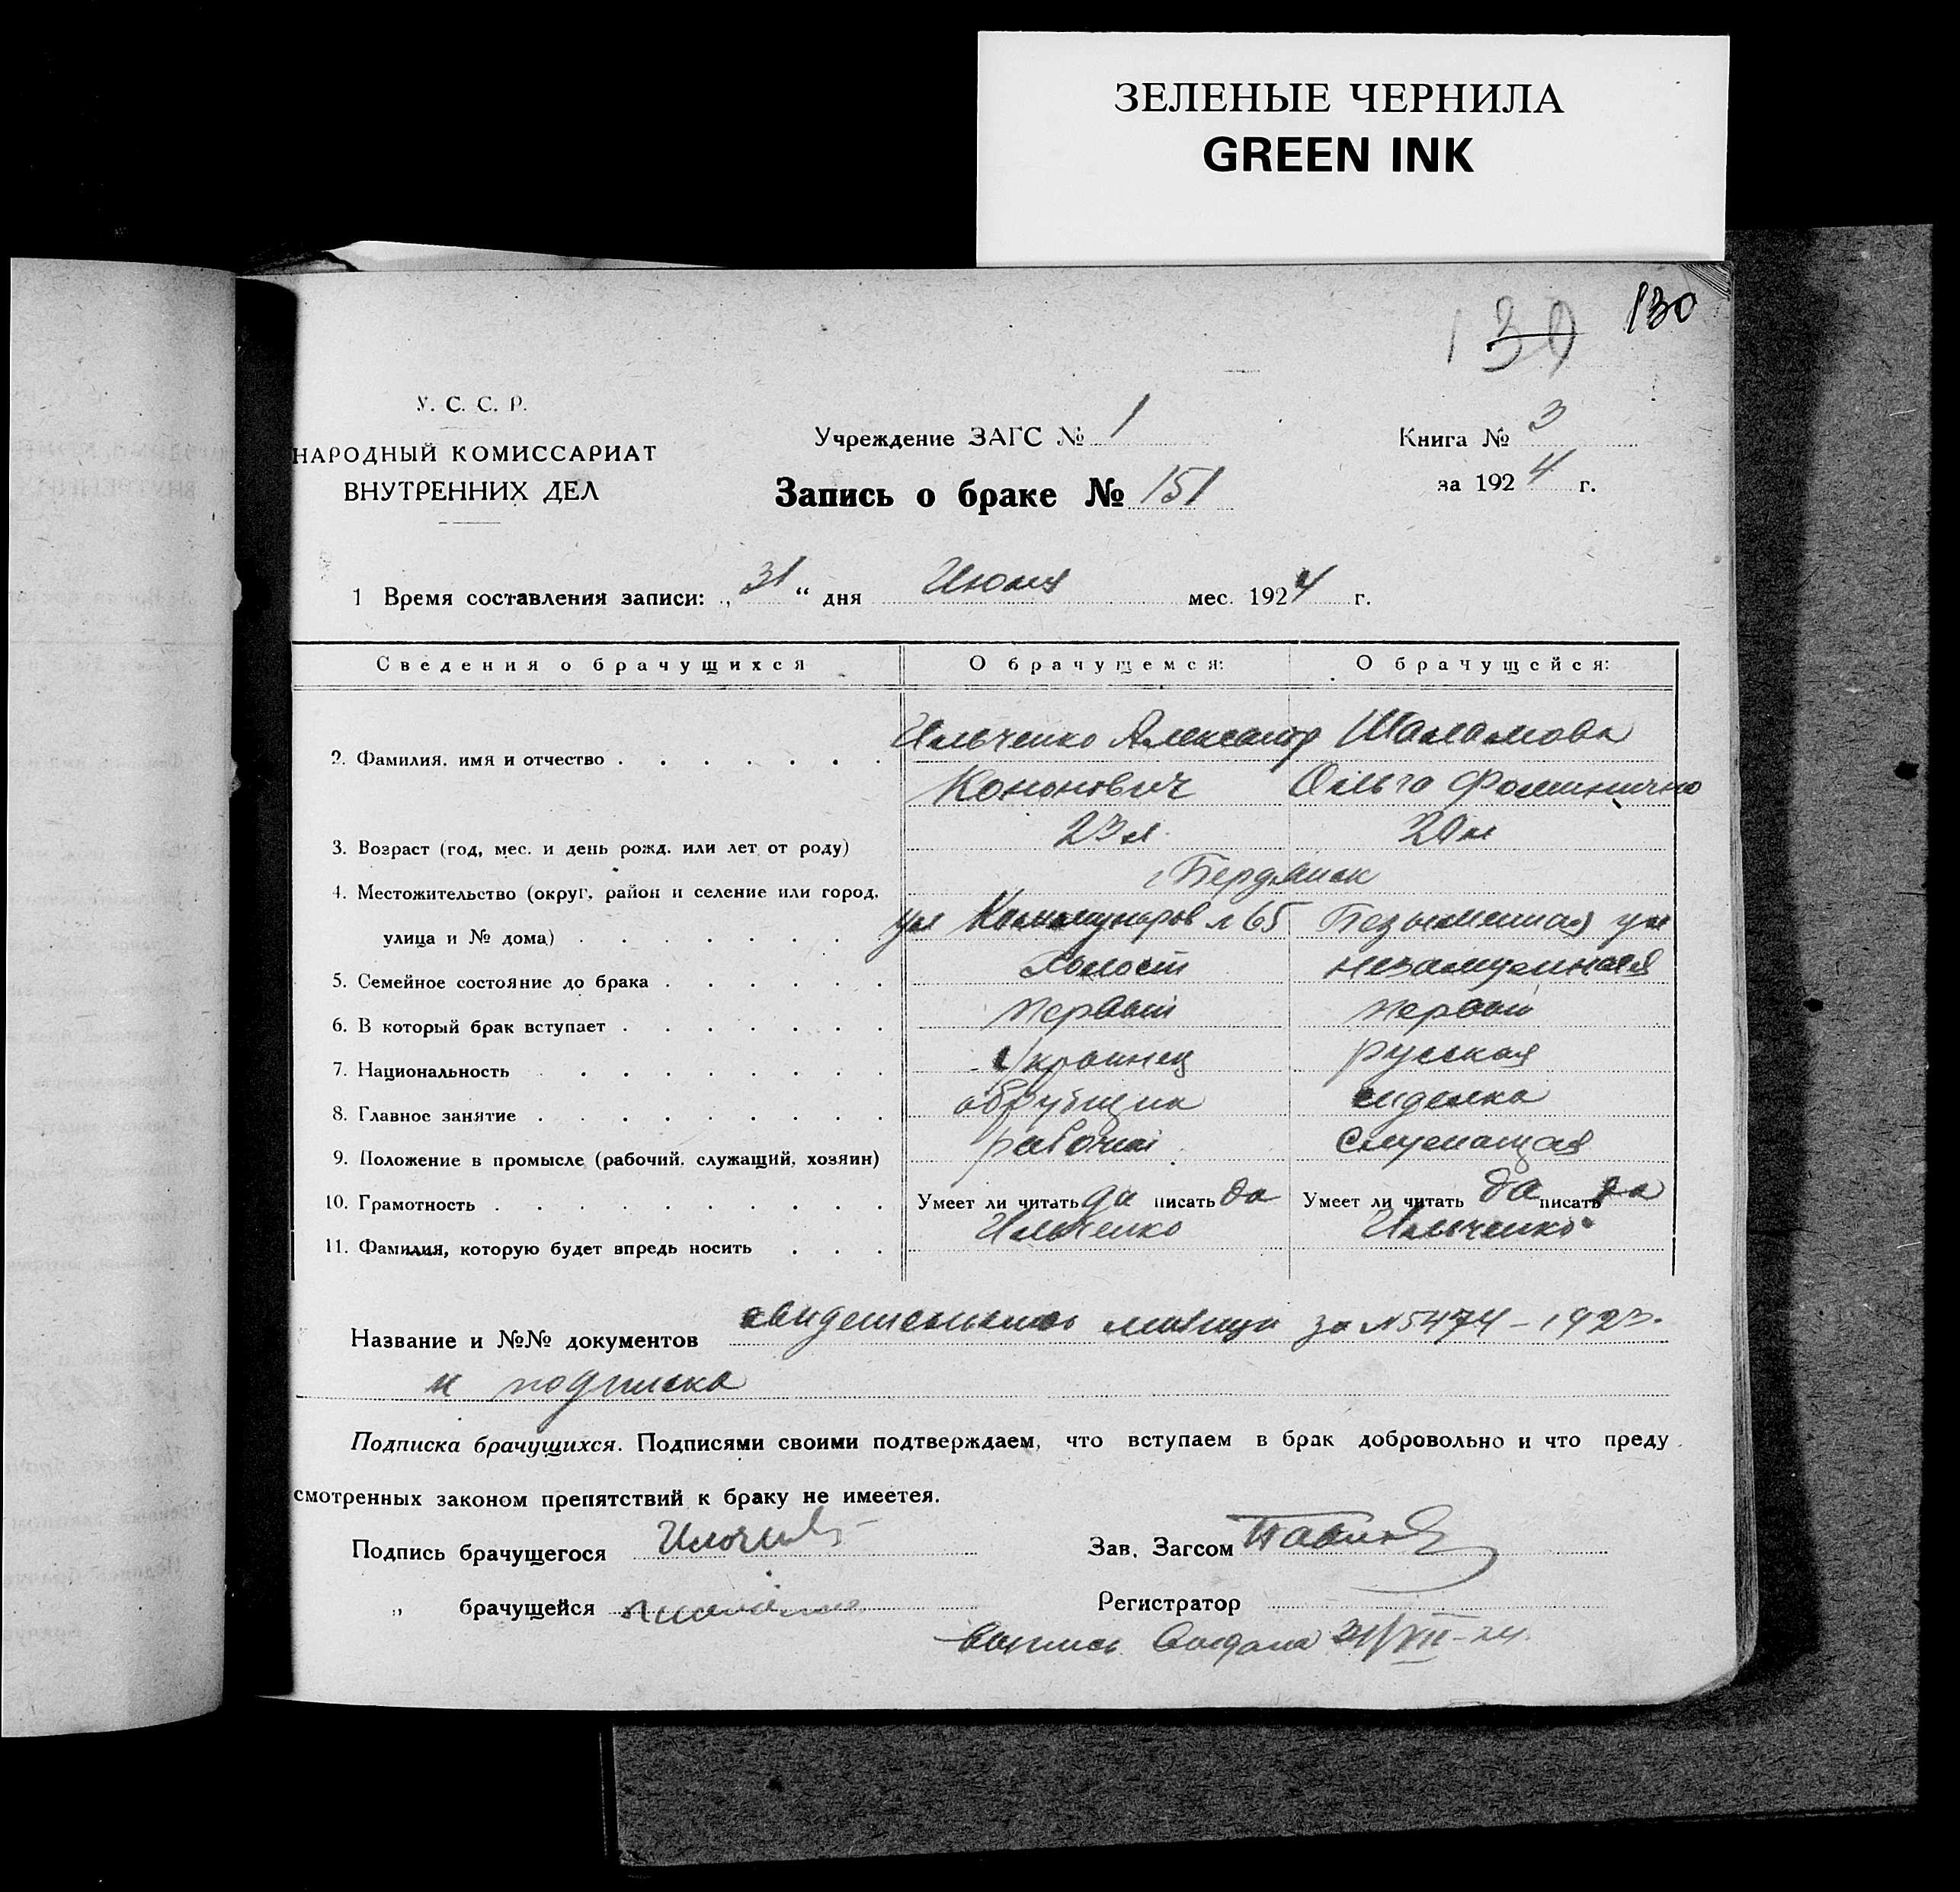 ЗЕЛЕНЫЕ ЧЕРНИЛА
GREEN INK
130
130
У. С. С. Р.
НАРОДНЫЙ КОМИССАРИАТ
ВНУТРЕННИХ ДЕЛ
Учреждение ЗАГС № 1
Запись о браке № 151
Книга № 3
за 1924 г.
1 Время составления записи: „31“ дня Июля мес. 1924 г.
Сведения о брачущихся О брачущемся: О брачущейся:
2. Фамилия, имя и отчество Ильченко Александр Шаламова
Кононович Ольга Фоминична
3. Возраст (год, мес. и день рожд. или лет от роду) 23 л. 20 л
4. Местожительство (округ, район и селение или город, г Бердянск
улица и № дома) ул Коммунаров № 65 Безыменная ул
5. Семейное состояние до брака Холост незамужняя
6. В который брак вступает первый первый
7. Национальность Украинец русская
8. Главное занятие обрубщик сиделка
9. Положение в промысле (рабочий, служащий, хозяин) рабочий служащая
10. Грамотность Умеет ли читать да писать да Умеет ли читать да писать да
11. Фамилия, которую будет впредь носить Ильченко Ильченко
Название и №№ документов свидетельство милиции за № 5474 - 1923.
и подписка
Подписка брачущихся. Подписями своими подтверждаем, что вступаем в брак добровольно и что преду
смотренных законом препятствий к браку не имеетея.
Подпись брачущегося
Зав. Загсом
„ брачущейся
Регистратор
выпись выдана 31/VII-24